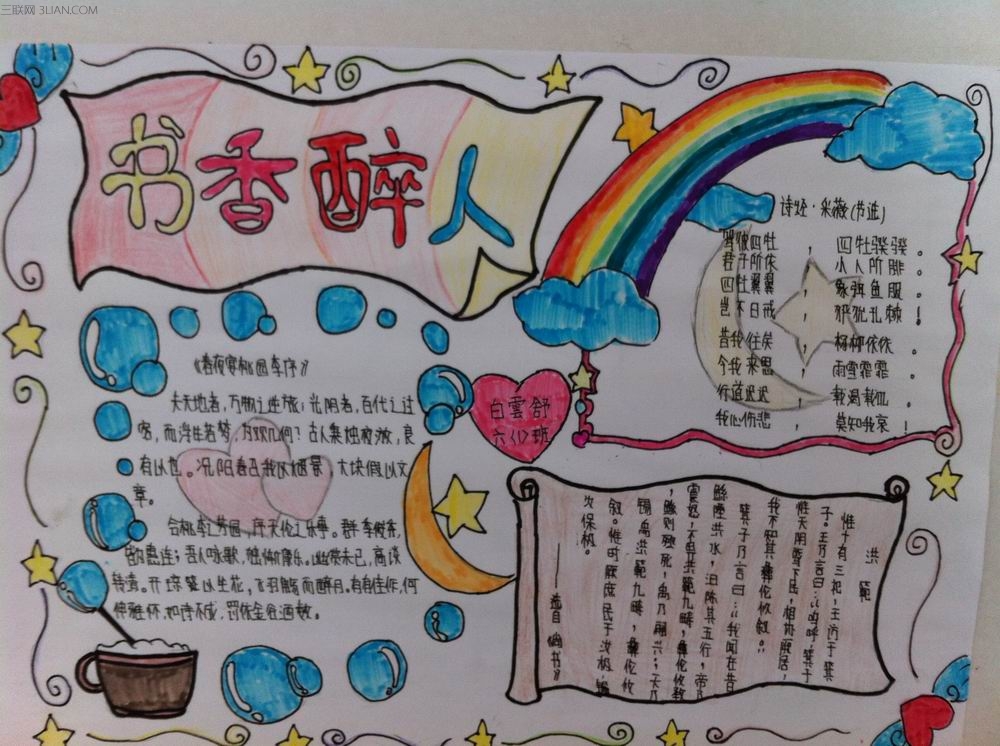 三联网 3LIAN.COM
书香醉人
诗经·采薇(节选)
驾彼四牡，四牡骙骙。
君子所依，小人所腓。
四牡翼翼，象弭鱼服。
岂不日戒，玁狁孔棘！
昔我往矣，杨柳依依。
今我来思，雨雪霏霏。
行道迟迟，载渴载饥。
我心伤悲，莫知我哀！
白雲舒
六(1)班
《春夜宴桃园李序》
夫天地者，万物之逆旅；光阴者，百代之过
客，而浮生若梦，为欢几何？古人秉烛夜游，良
有以也。况阳春召我以烟景，大块假以文
章。
会桃李芳园，序天伦之乐事。群季俊秀，
惠连；吾人咏歌，惭康乐。幽赏未已，高谈
转清。开琼筵以坐花，飞羽觞而醉月。有佳作，何
伸雅怀，如诗不成，罚依金谷酒数。
洪範
惟十有三祀，王访于箕
子。王乃言曰：“呜呼，箕子
惟天阴骘下民，相协厥居，
我不知其彝伦攸叙。”
箕子乃言曰：“我闻在昔
鲧堙洪水，汩陈其五行，帝乃
震怒，不畀洪範九畴，彝伦攸斁
，鲧则殛死，禹乃嗣兴。天乃
锡禹洪範九畴，彝伦攸
叙。惟时厥庶民于汝极，锡
汝保极。
——选自《尚书》